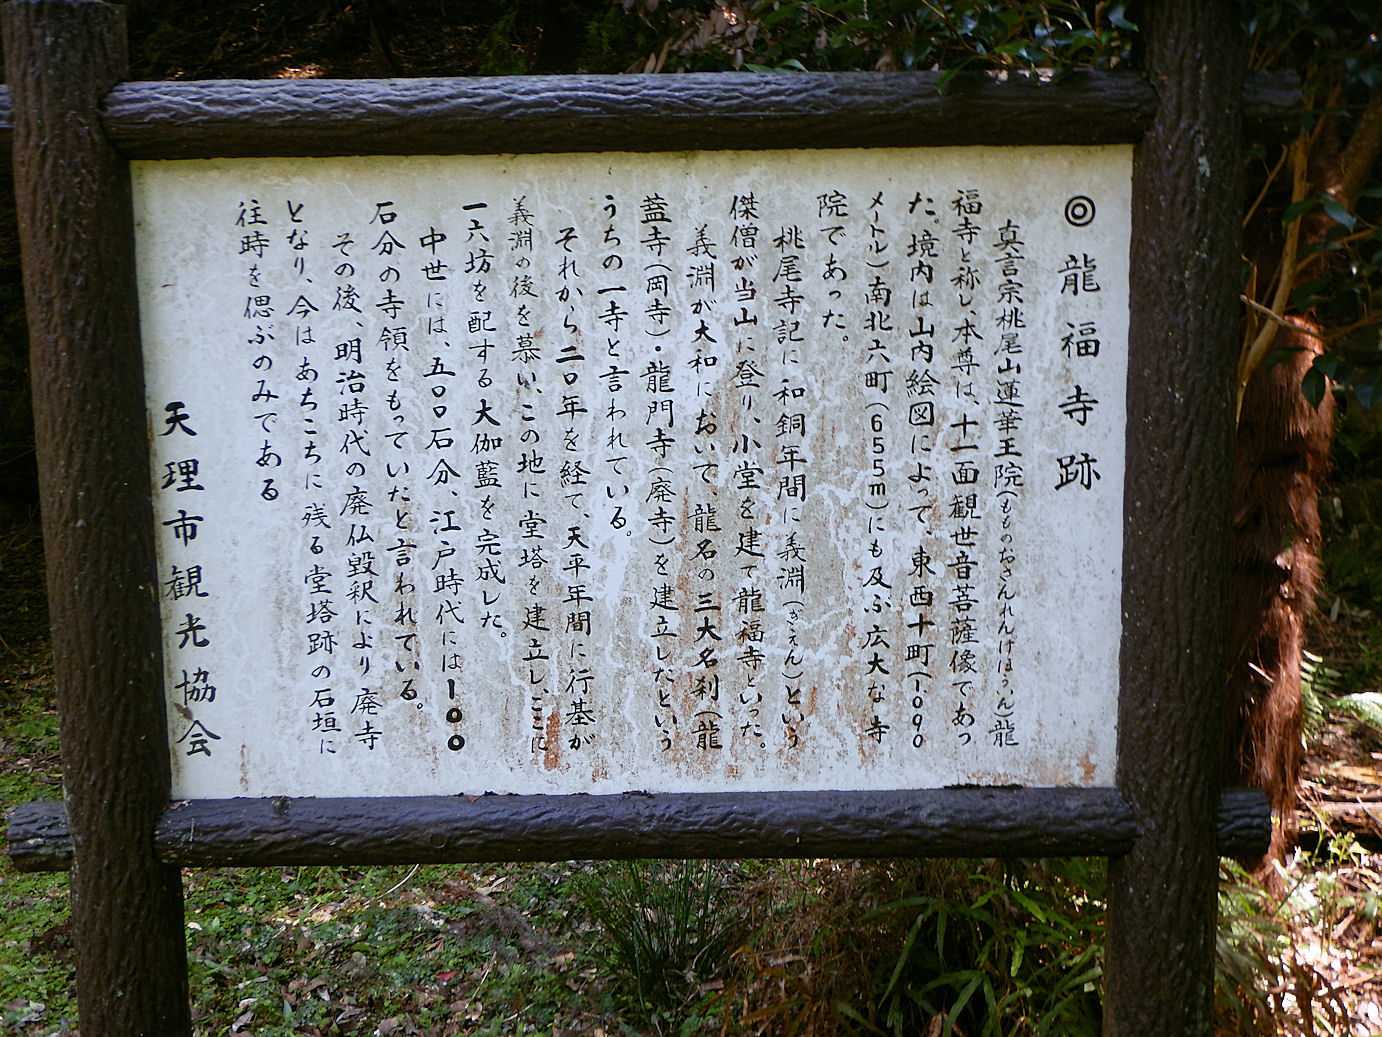 ◎ 龍福寺跡
真言宗桃尾山蓮華王院(もものおさんれんげおういん)龍
福寺と称し、本尊は、十一面観世音菩薩像であっ
た。境内は山内絵図によって、東西十町(1090
メートル)南北六町(655m)にも及ぶ広大な寺
院であった。
桃尾寺記に和銅年間に義淵(ぎえん)という
傑僧が当山に登り、小堂を建て龍福寺といった。
義淵が大和において、龍名の三大名刹(龍
蓋寺(岡寺)・龍門寺(廃寺)を建立したという
うちの一寺と言われている。
それから二〇年を経て、天平年間に行基が
義淵の後を慕い、この地に堂塔を建立し、ここに
一六坊を配する大伽藍を完成した。
中世には、五〇〇石分、江戸時代には100
石分の寺領をもっていたと言われている。
その後、明治時代の廃仏毀釈により廃寺
となり、今はあちこちに残る堂塔跡の石垣に
往時を偲ぶのみである
天理市観光協会